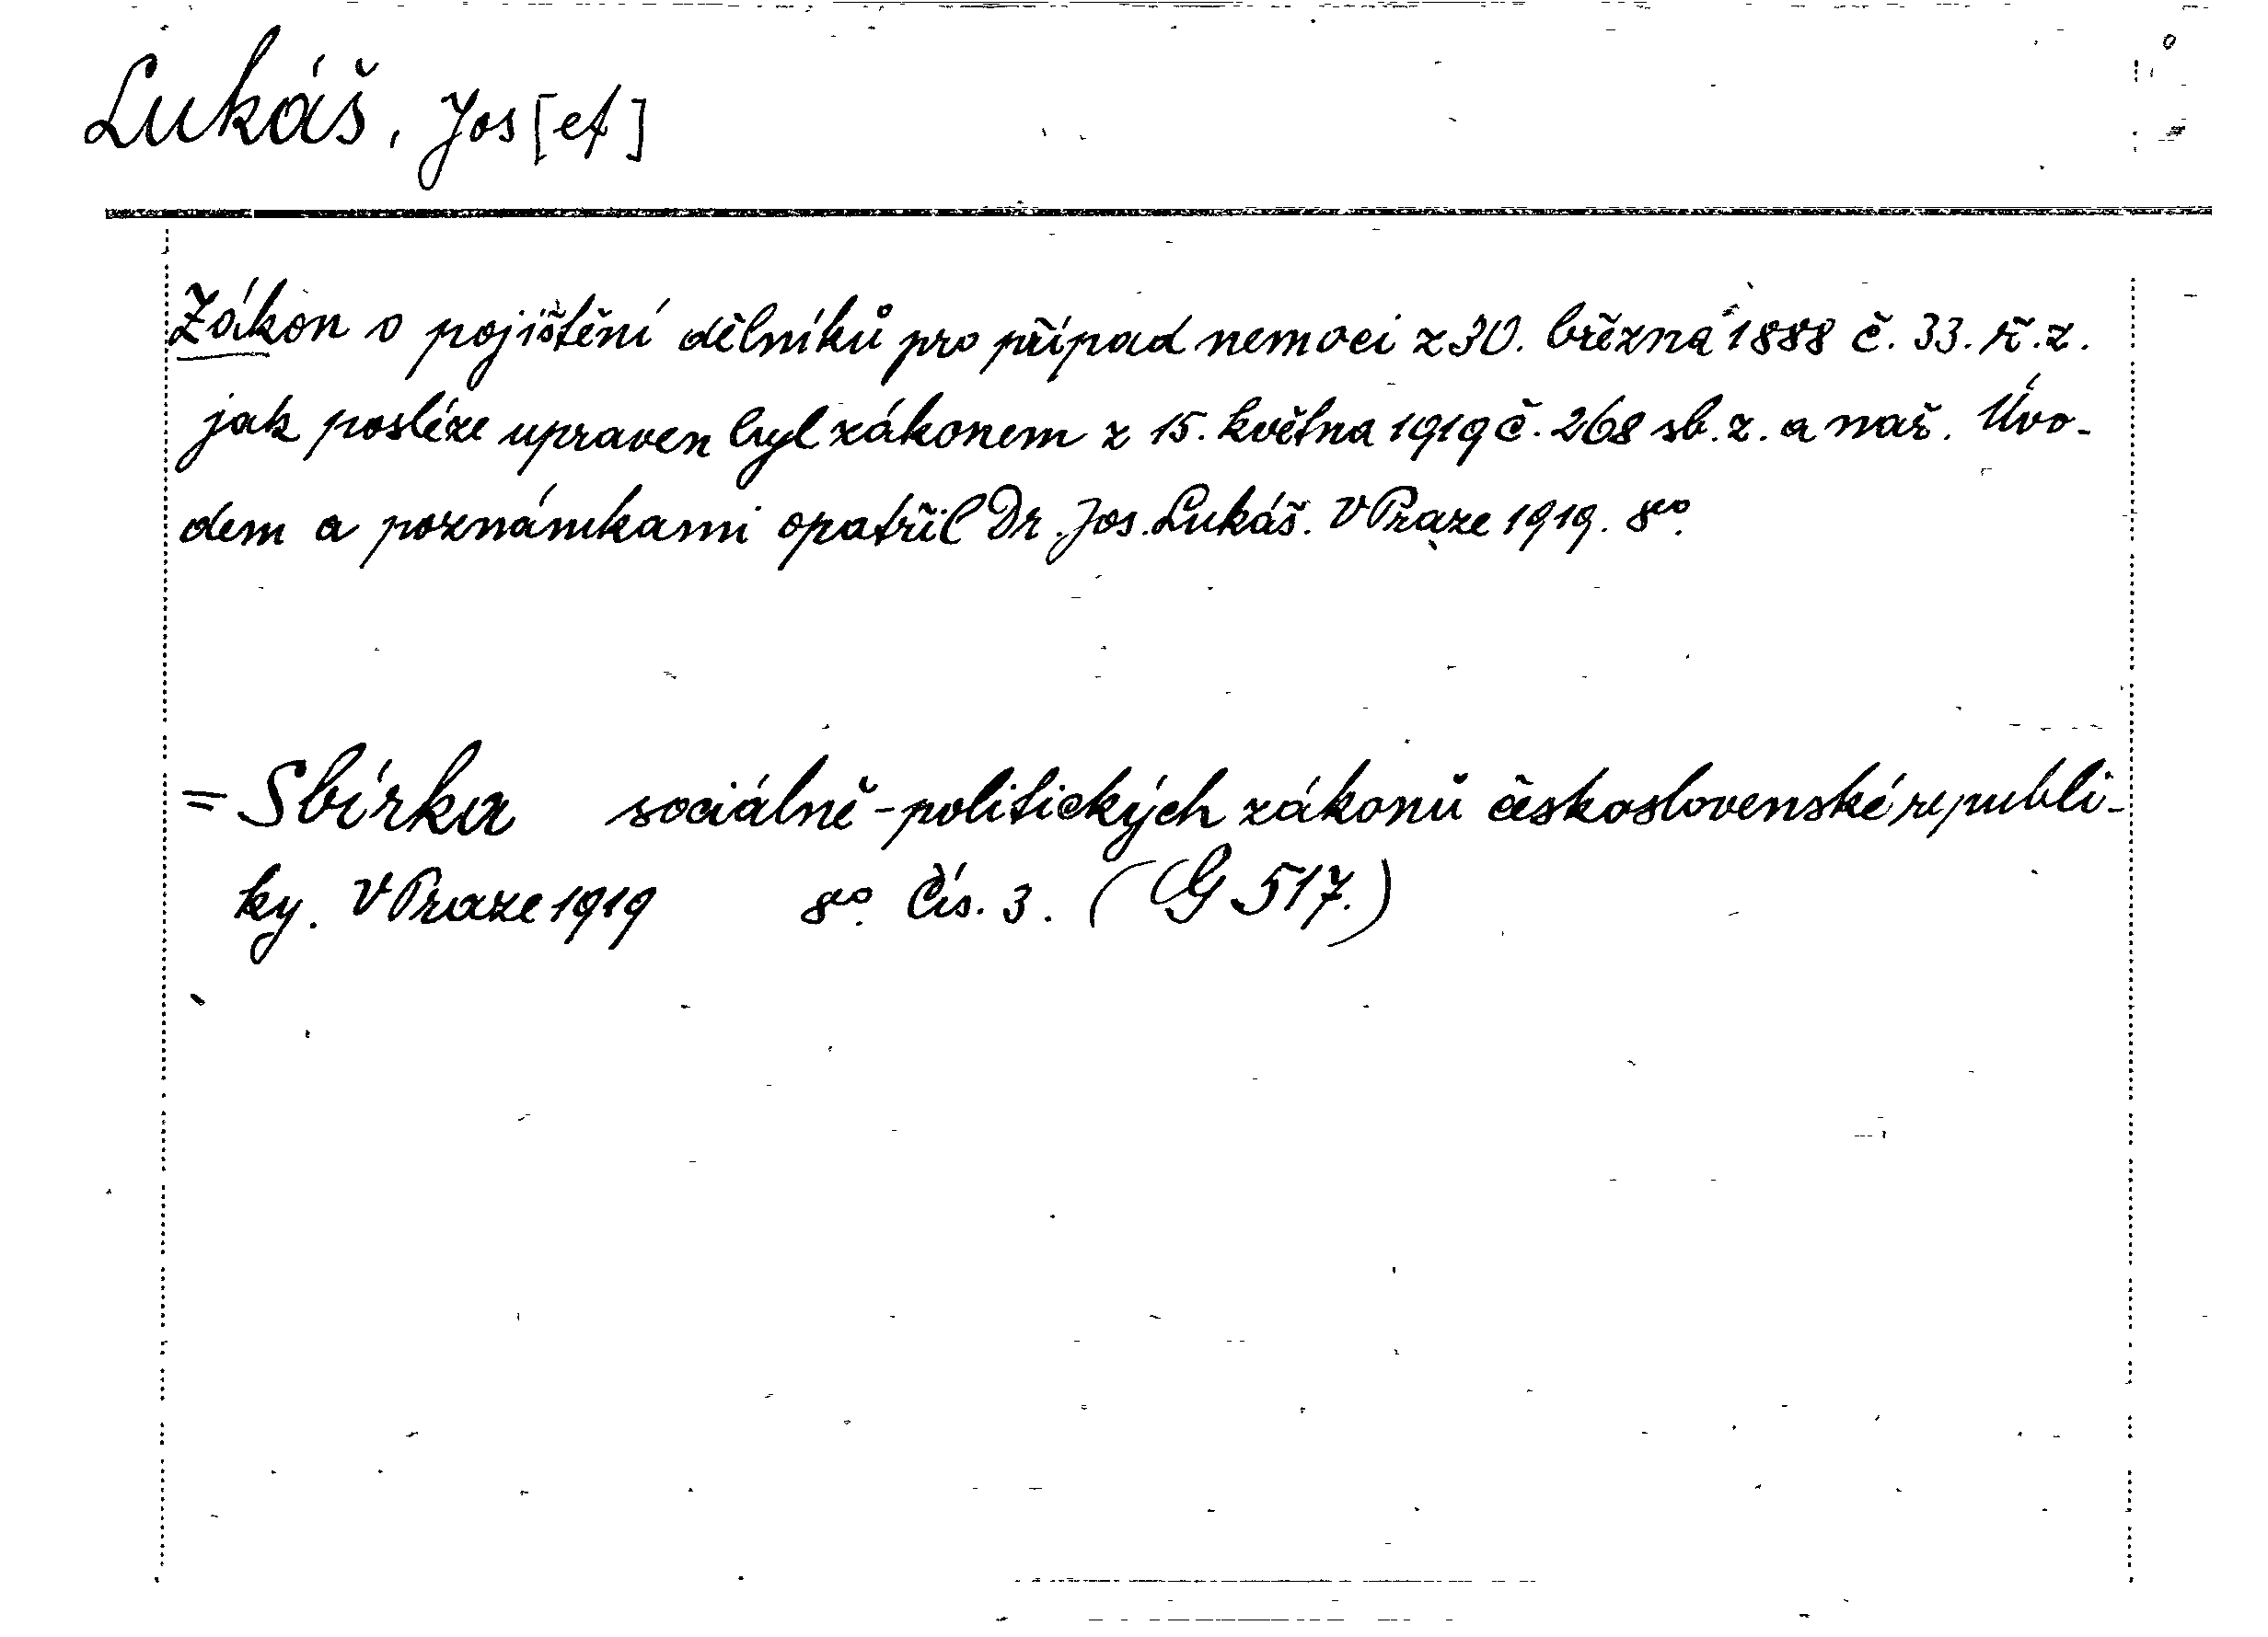 Lukáš, Jos[ef]
Zákon o pojištění dělníků pro případ nemoci z 30. března 1888 č. 33. ř. z.
jak posléze upraven byl zákonem z 15. května 1919 č. 268 sb. z. a nař. Úvo-
dem a poznámkami opatřil Dr. Jos. Lukáš. V Praze 1919. 8º.
= Sbírka sociálně-politických zákonů československé republi-
ky. V Praze 1919 8º. Čís. 3. (G 517.)